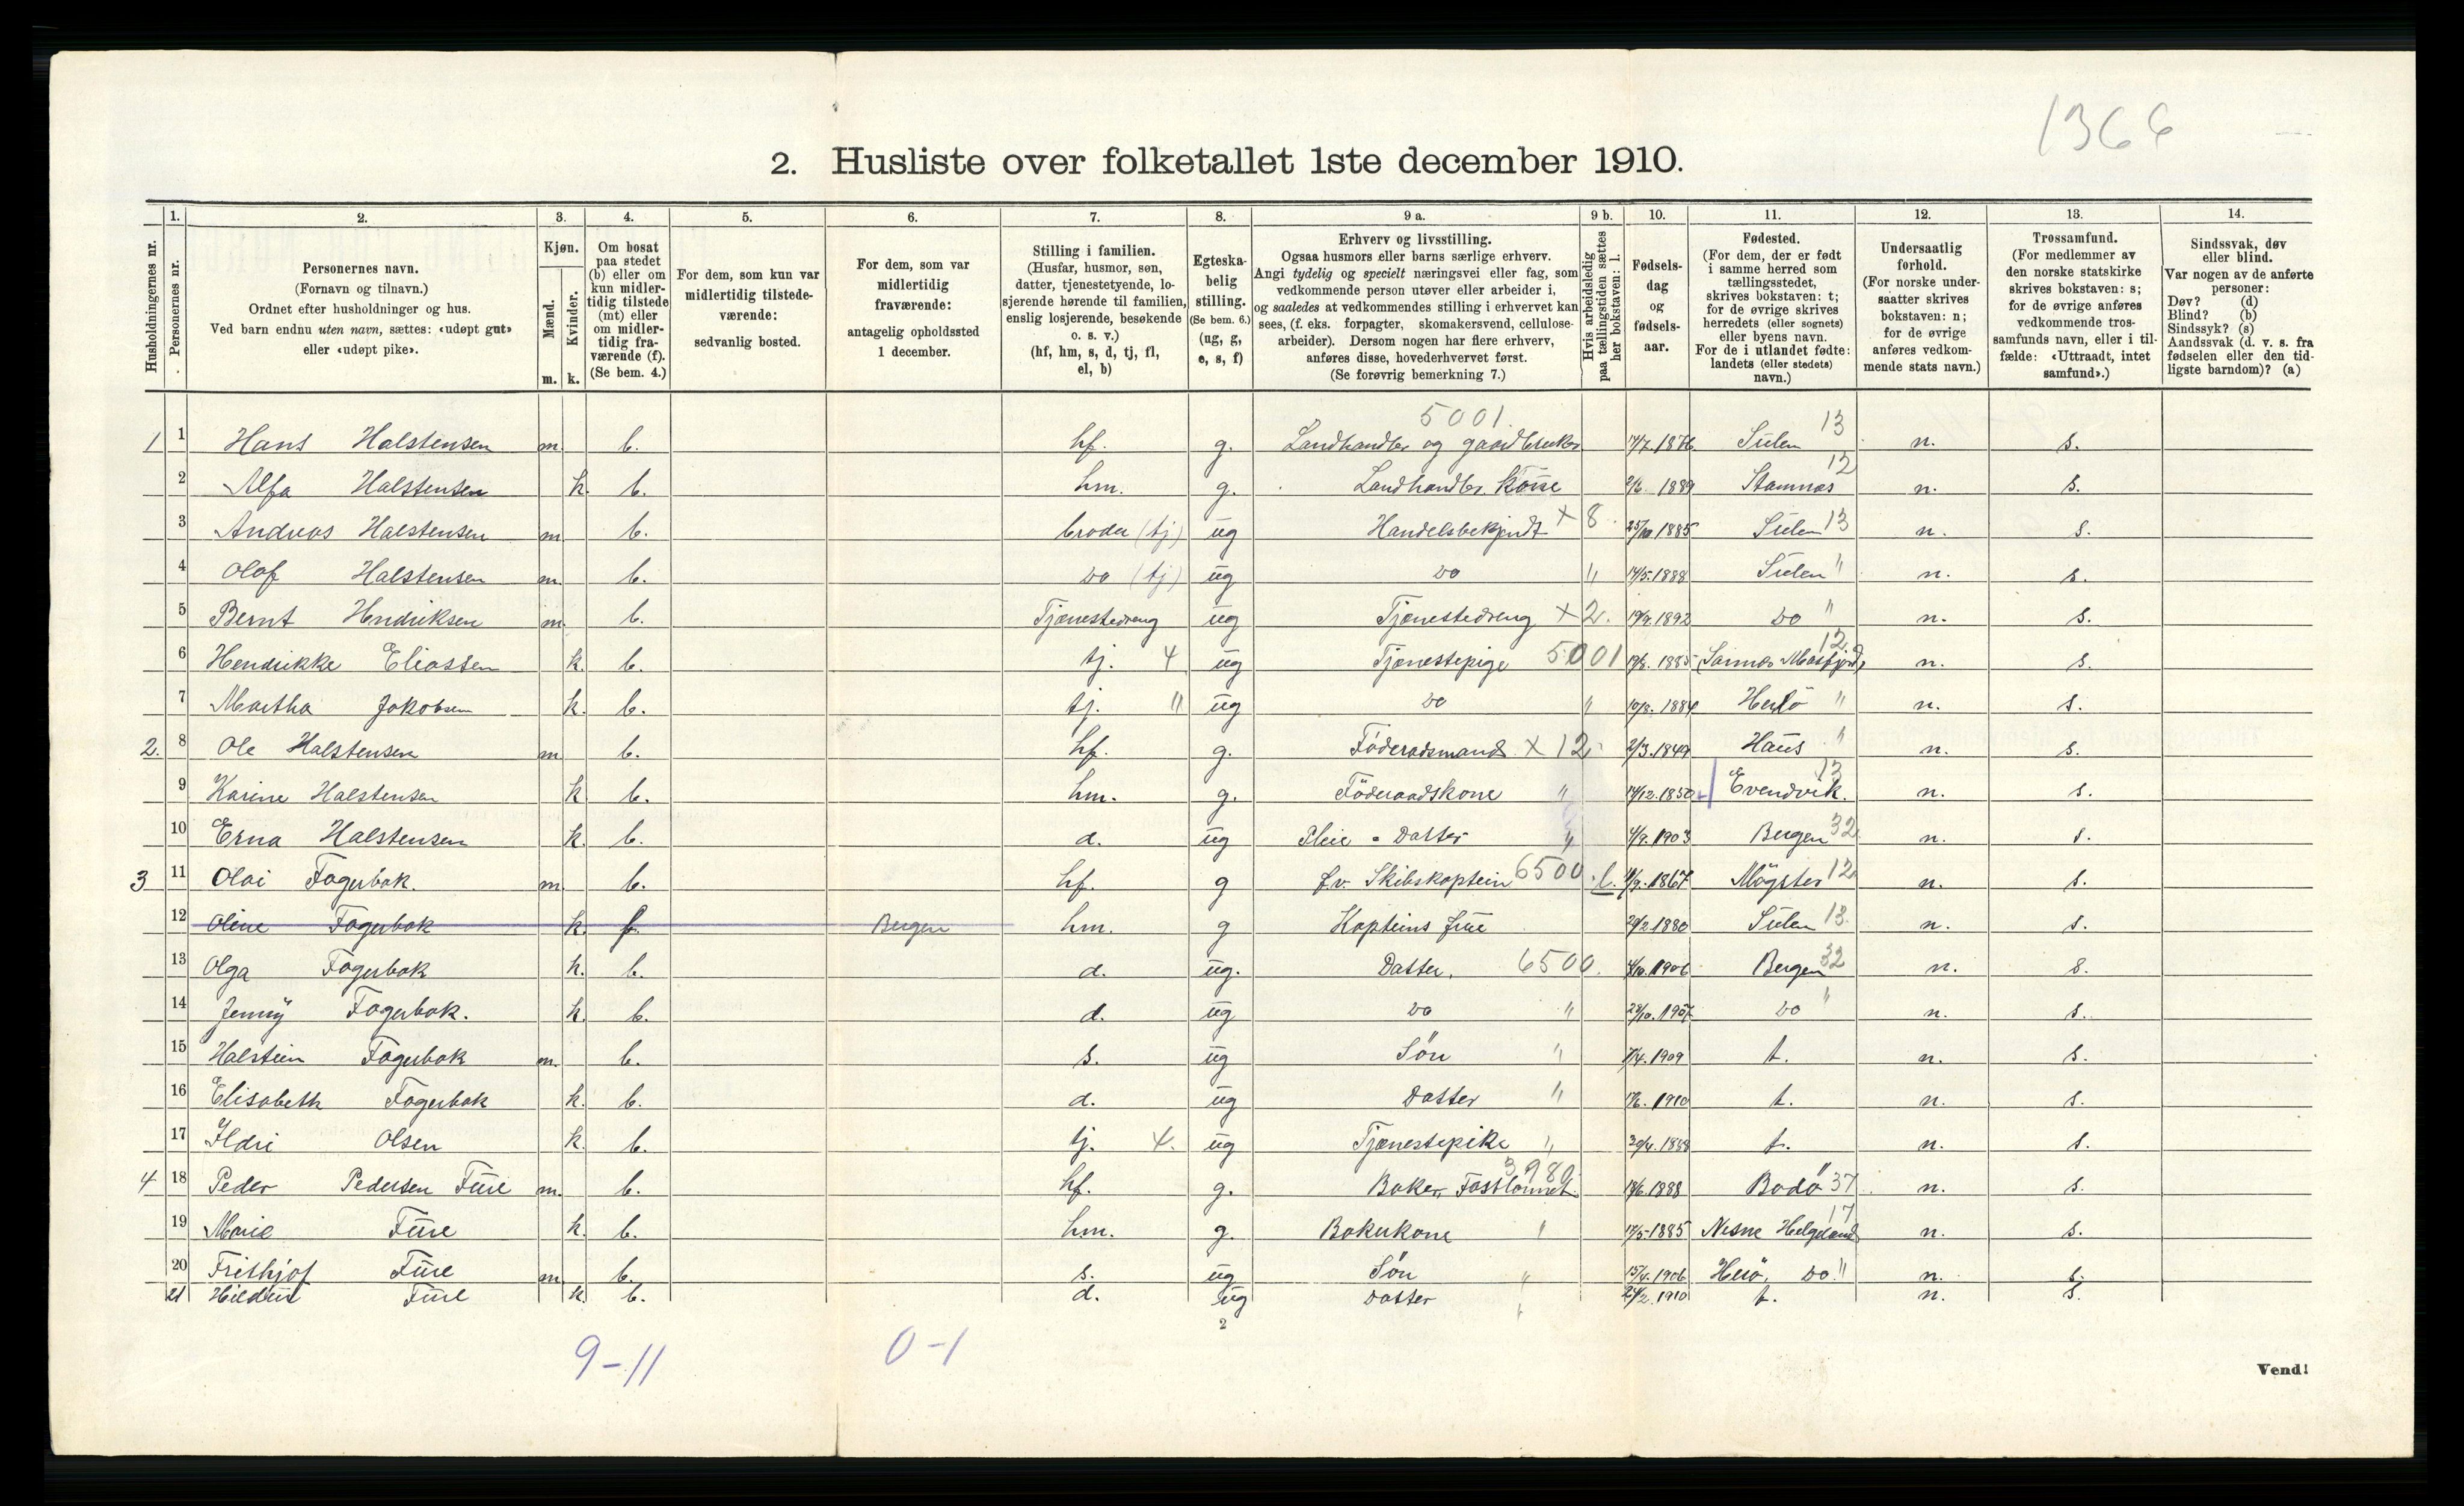 1366
2. Husliste over folketallet 1ste december 1910.
Husholdningernes nr.
1. Personernes nr.
2. Personernes navn. (Fornavn og tilnavn.) Ordnet efter husholdninger og hus. Ved barn endnu uten navn, sættes: «udøpt gut» eller «udøpt pike».
3. Kjøn. Mænd. Kvinder. m. k.
4. Om bosat paa stedet (b) eller om kun midlertidig tilstede (mt) eller om midlertidig fraværende (f). (Se bem. 4.)
5. For dem, som kun var midlertidig tilstedeværende: sedvanlig bosted.
6. For dem, som var midlertidig fraværende: antagelig opholdssted 1 december.
7. Stilling i familien. (Husfar, husmor, søn, datter, tjenestetyende, losjerende hørende til familien, enslig losjerende, besøkende o. s. v.) (hf, hm, s, d, tj, fl, el, b)
8. Egteskabelig stilling. (Se bem. 6.) (ug, g, e, s, f)
9 a. Erhverv og livsstilling. Ogsaa husmors eller barns særlige erhverv. Angi tydelig og specielt næringsvei eller fag, som vedkommende person utøver eller arbeider i, og saaledes at vedkommendes stilling i erhvervet kan sees, (f. eks. forpagter, skomakersvend, cellulosearbeider). Dersom nogen har flere erhverv, anføres disse, hovederhvervet først. (Se forøvrig bemerkning 7.)
9 b. Hvis arbeidsledig paa tællingstiden sættes her bokstaven: l.
10. Fødselsdag og fødselsaar.
11. Fødested. (For dem, der er født i samme herred som tællingsstedet, skrives bokstaven: t; for de øvrige skrives herredets (eller sognets) eller byens navn. For de i utlandet fødte: landets (eller stedets) navn.)
12. Undersaatlig forhold. (For norske undersaatter skrives bokstaven: n; for de øvrige anføres vedkommende stats navn.)
13. Trossamfund. (For medlemmer av den norske statskirke skrives bokstaven: s; for de øvrige anføres vedkommende trossamfunds navn, eller i tilfælde: «Uttraadt, intet samfund».)
14. Sindssvak, døv eller blind. Var nogen av de anførte personer: Døv? (d) Blind? (b) Sindssyk? (s) Aandssvak (d. v. s. fra fødselen eller den tidligste barndom)? (a)
5001. 13
1 1 Hans Halstensen m. b. hf. g. Landhandler og gaardbruker 17/7.1876 Sulen n. s.
2 Alfa Halstensen k. b. hm. g. Landhandler kone 2/6 1889 Stamnæs 12 n. s.
3 Andreas Halstensen m b. broder (tj) ug Handelsbetjendt × 8. 25/10 1885 Sulen 13 n. s.
4 Olaf Halstensen m. b. Do (tj) ug Do " 14/5.1888 Sulen " n. s.
5 Bernt Hendriksen m b. Tjænestedreng ug Tjænestedreng × 2. 19/9.1892 Do " n. s.
6 Hendrikke Eliassen k. b. tj. 4 ug Tjænestepige 5001 1885 Masfjord 12 n. s.
7 Martha Jakobsen k. b. tj. " ug Do " 10/8.1884 Herlö " n. s.
2. 8 Ole Halstensen m b. hf. g. Föderadsmand × 12 2/3.1849 Haus " n. s.
9 Karine Halstensen k b. hm. g. Föderaadskone " 14/12.1850 Evendvik. 13 n. s.
10 Erna Halstensen k. b. d. ug Pleie = Datter " 4/9.1903 Bergen 32 n. s.
3 11 Olai Fagerbak. m b. hf. g f.v. Skibskaptein 6500 l. 1867 Mögster 12 n. s.
12 Oline Fagerbak k. f. Bergen hm. g Kapteins frue 29/2 1880 Sulen 13. n. s.
13 Olga Fagerbak k. b. d. ug. Datter. 6500. 4/10.1906 Bergen 32 n. s.
14 Jenny Fagerbak. k. b. d. ug Do " 29/10.1907 Do " n. s.
15 Halstein Fagerbak m. b. s. ug Sön " 7/4.1909 t. n. s.
16 Elisabeth Fagerbak k. b. d. ug Datter " 1910 t. n. s.
17 Ildri Olsen k. b. tj. 4. ug Tjænestepike " 30/4.1888 t. n. s.
4 18 Peder Pedersen Fure m. b. hf. g. Baker, Fastlönnet 3980 18/6.1888 Bodö 37 n. s.
19 Marie Fure k. b. hm. g. Bakerkone " 17/5-1885 Nesne Helgeland 17 n. s.
20 Frithjof Fure m b. s. ug Sön " 15/4.1906 Herö, Do. " n. s.
21 Hildur Fure k. b. d. ug Datter " 24/2.1910 t. n. s.
2
9-11 0-1
Vend!